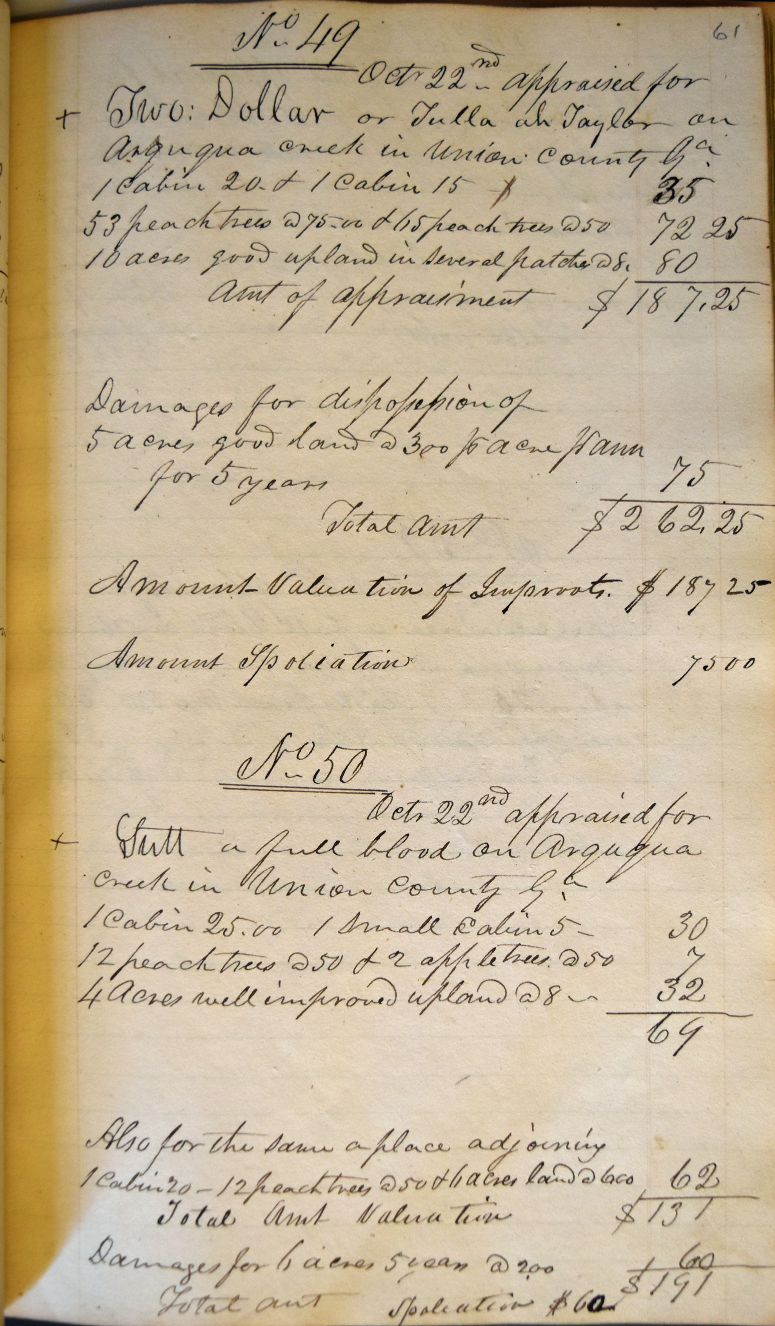 61
No 49
Octr 22nd appraised for
+ Two: Dollar or Tulla ah Taylor on
Arququa creek in Union County Ga
1 Cabin 20. & 1 Cabin 15 - 35
53 peach trees @ 75-00 & 65 peach trees @ 50 72 25
10 acres good upland in several patches @ 8. 80
Amt of appraisment $ 187.25
Damages for dispossession of
5 acres good land @ 300 pr acre pr ann
for 5 years 75
Total Amt $ 262.25
Amount Valuation of Improvts. $ 187 25
Amount Spoliation 7500
No 50
Octr 22nd appraised for
+ a full blood on Arququa
creek in Union County Ga
1 Cabin 25.00 1 Small Cabin 5 - 30
12 peach trees @ 50 & 2 apple trees. @ 50 7
4 Acres well improved upland @ 8 - 32
69
Also for the same a place adjoining
1 Cabin 20 - 12 peach trees @ 50 & 6 acres land @ 600 62
Total Amt Valuation $ 131
Damages for 6 acres 5 years @ 200 60
Total amt Spoliation $ 60. $ 191